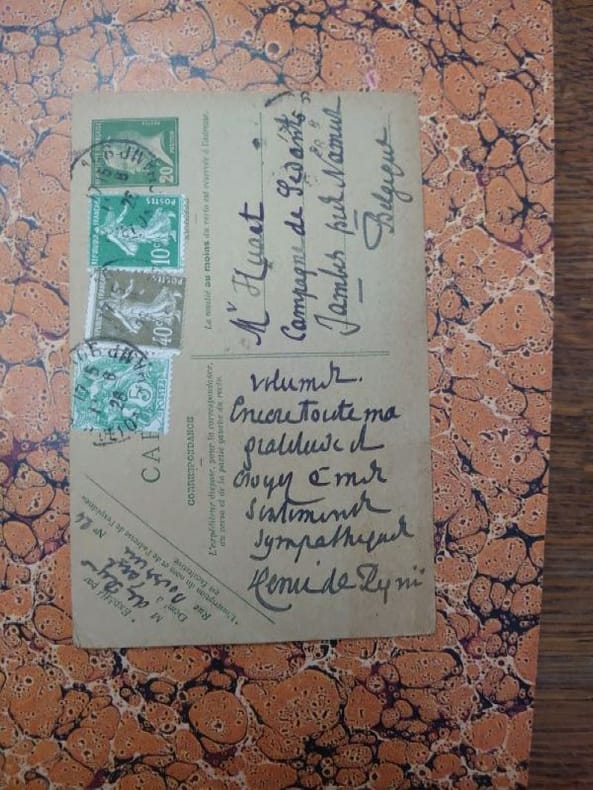 POSTES
20
RÉPUBLIQUE FRANÇAISE
POSTES
10c
40c
5
CORRESPONDANCE
L'expéditeur dispose, pour la correspondance,
du verso et de la partie gauche du recto
La moitié au moins du recto est réservée à l'adresse.
Mr Huart
Campagne de
Jambes près Namur
Belgique
volume et.
Encore toute ma
gratitude et
croyez à mes
sentiments
sympathiques
Henri de Régnier
* Expédié par
M
Demt à
Rue Nº 24
*L'inscription du nom et de l'adresse de l'expéditeur
est facultative